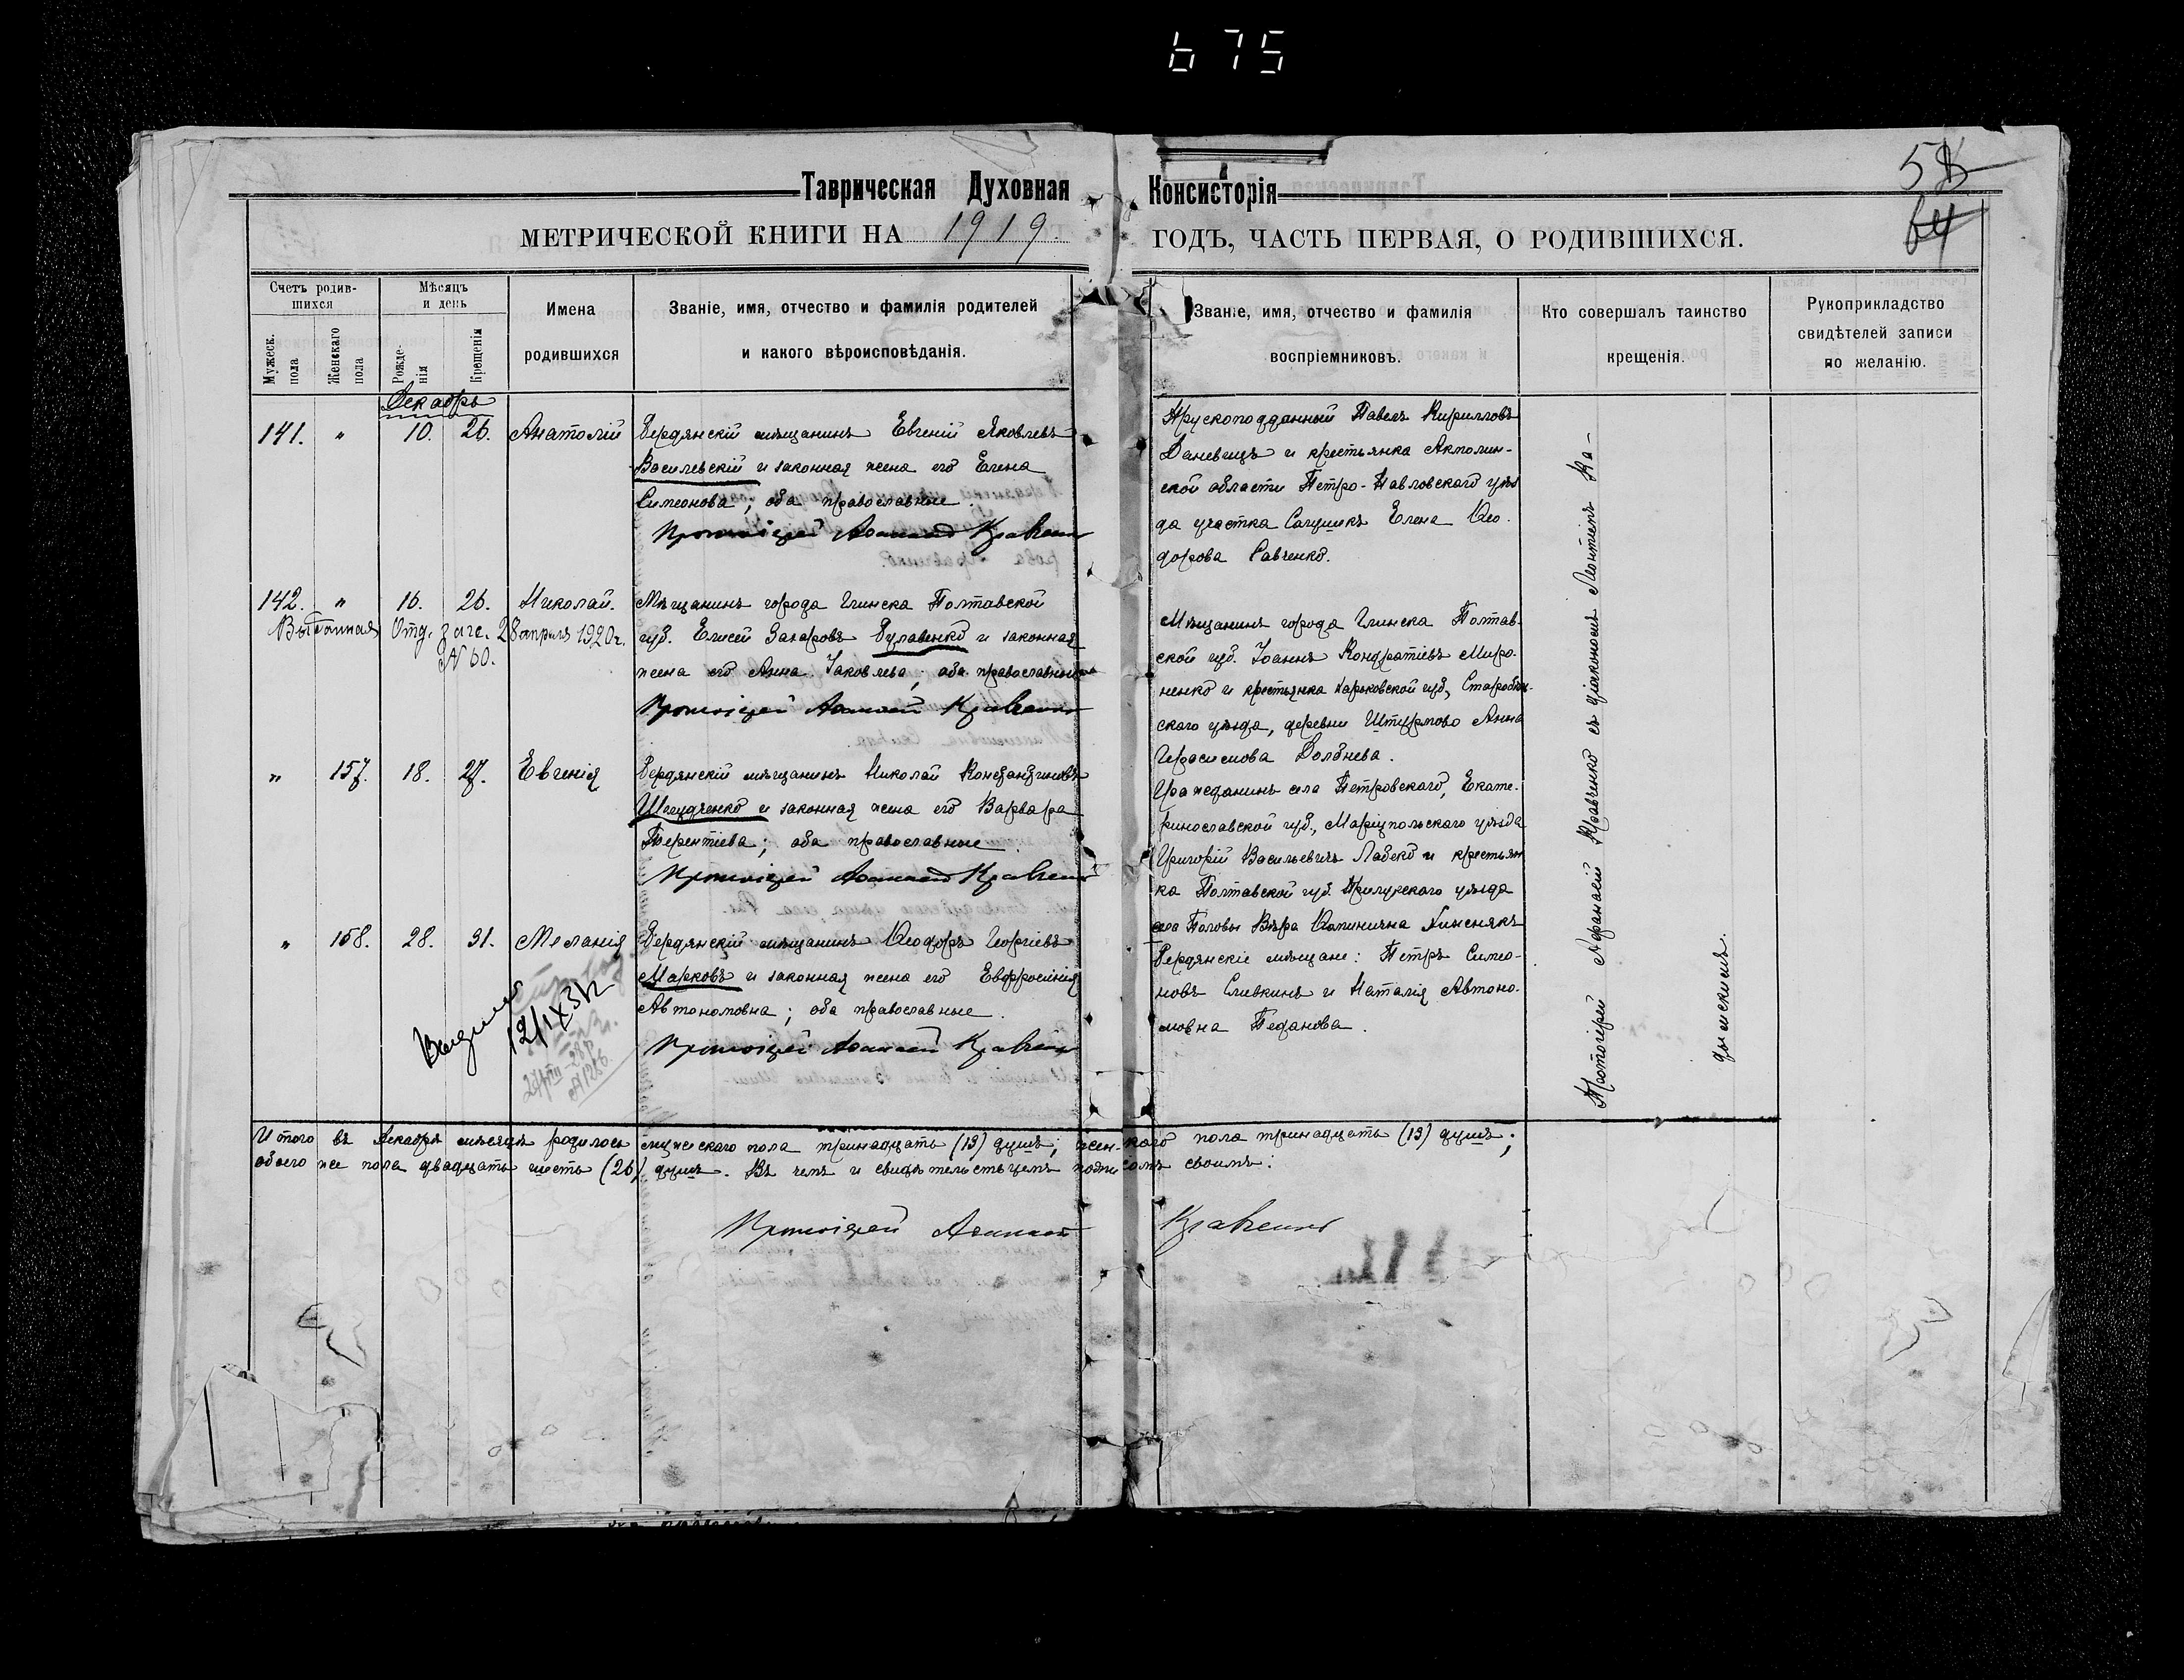 675
Таврическая Духовная Консисторія
58
64
МЕТРИЧЕСКОЙ КНИГИ НА 1919 ГОДЪ, ЧАСТЬ ПЕРВАЯ, О РОДИВШИХСЯ.
Счетъ родив-
шихся
Мужеск.
пола
Женскаго
пола
Мѣсяцъ
и день
Рожде-
нія
Крещенія
Имена
родившихся
Званіе, имя, отчество и фамилія родителей
и какого вѣроисповѣданія.
Званіе, имя, отчество и фамилія
воспріемниковъ.
Кто совершалъ таинство
крещенія.
Рукоприкладство
свидѣтелей записи
по желанію.
Декабрь
141. " 10. 26. Анатолій
Бердянскій мѣщанинъ Евгеній Яковлевъ
Василевскій и законная жена его Елена
Симеонова; оба православные.
Протоіерей Афанасій Кравченко
Павелъ Кирилловъ
Даневичъ и крестьянка Акмолин-
ской области Петро-Павловскаго уѣз
да участка Елена Ѳео-
дорова Савченко.
142. " 16. 26. Николай.
Отд. загс. 28 апрѣля 1920г.
N 60.
Мѣщанинъ города Глинска Полтавской
губ. Елисей Захаровъ Булавенко и законная
жена его Анна Іаковлева; оба православные
Протоіерей Афанасій Кравченко
Мѣщанинъ города Глинска Полтав-
ской губ. Іоаннъ Кондратіевъ Миро-
ненко и крестьянка Харьковской губ., Старобѣль-
скаго уѣзда, деревни Штурмово Анна
Герасимова Долбнева.
" 157. 18. 27. Евгенія
Бердянскій мѣщанинъ Николай Константиновъ
и законная жена его Варвара
Терентіева; оба православные.
Протоіерей Афанасій Кравченко
Гражданинъ села Петровскаго, Екате-
ринославской губ., Маріупольскаго уѣзда
Григорій Васильевичъ и крестьян
ка Полтавской губ. Прилукскаго уѣзда
Вѣра
" 158. 28. 31. Меланія
Бердянскій мѣщанинъ Ѳеодоръ Георгіевъ
Марковъ и законная жена его Евфросинія
Автономовна; оба православные.
Протоіерей Афанасій Кравченко
Бердянскіе мѣщане: Петръ Симео-
новъ Сливкинъ и Наталія Автоно-
мовна
12/IX 31г
Протоіерей Афанасій Кравченко съ діакономъ Леонтіемъ Ка-
дымскимъ.
Итого въ Декабрѣ мѣсяцѣ родилось мужескаго пола тринадцать (13) душъ; женскаго пола тринадцать (13) душъ;
обоего же пола двадцать шесть (26) душъ. Въ чемъ и свидѣтельствуемъ подписомъ своимъ:
Протоіерей Афанасій Кравченко